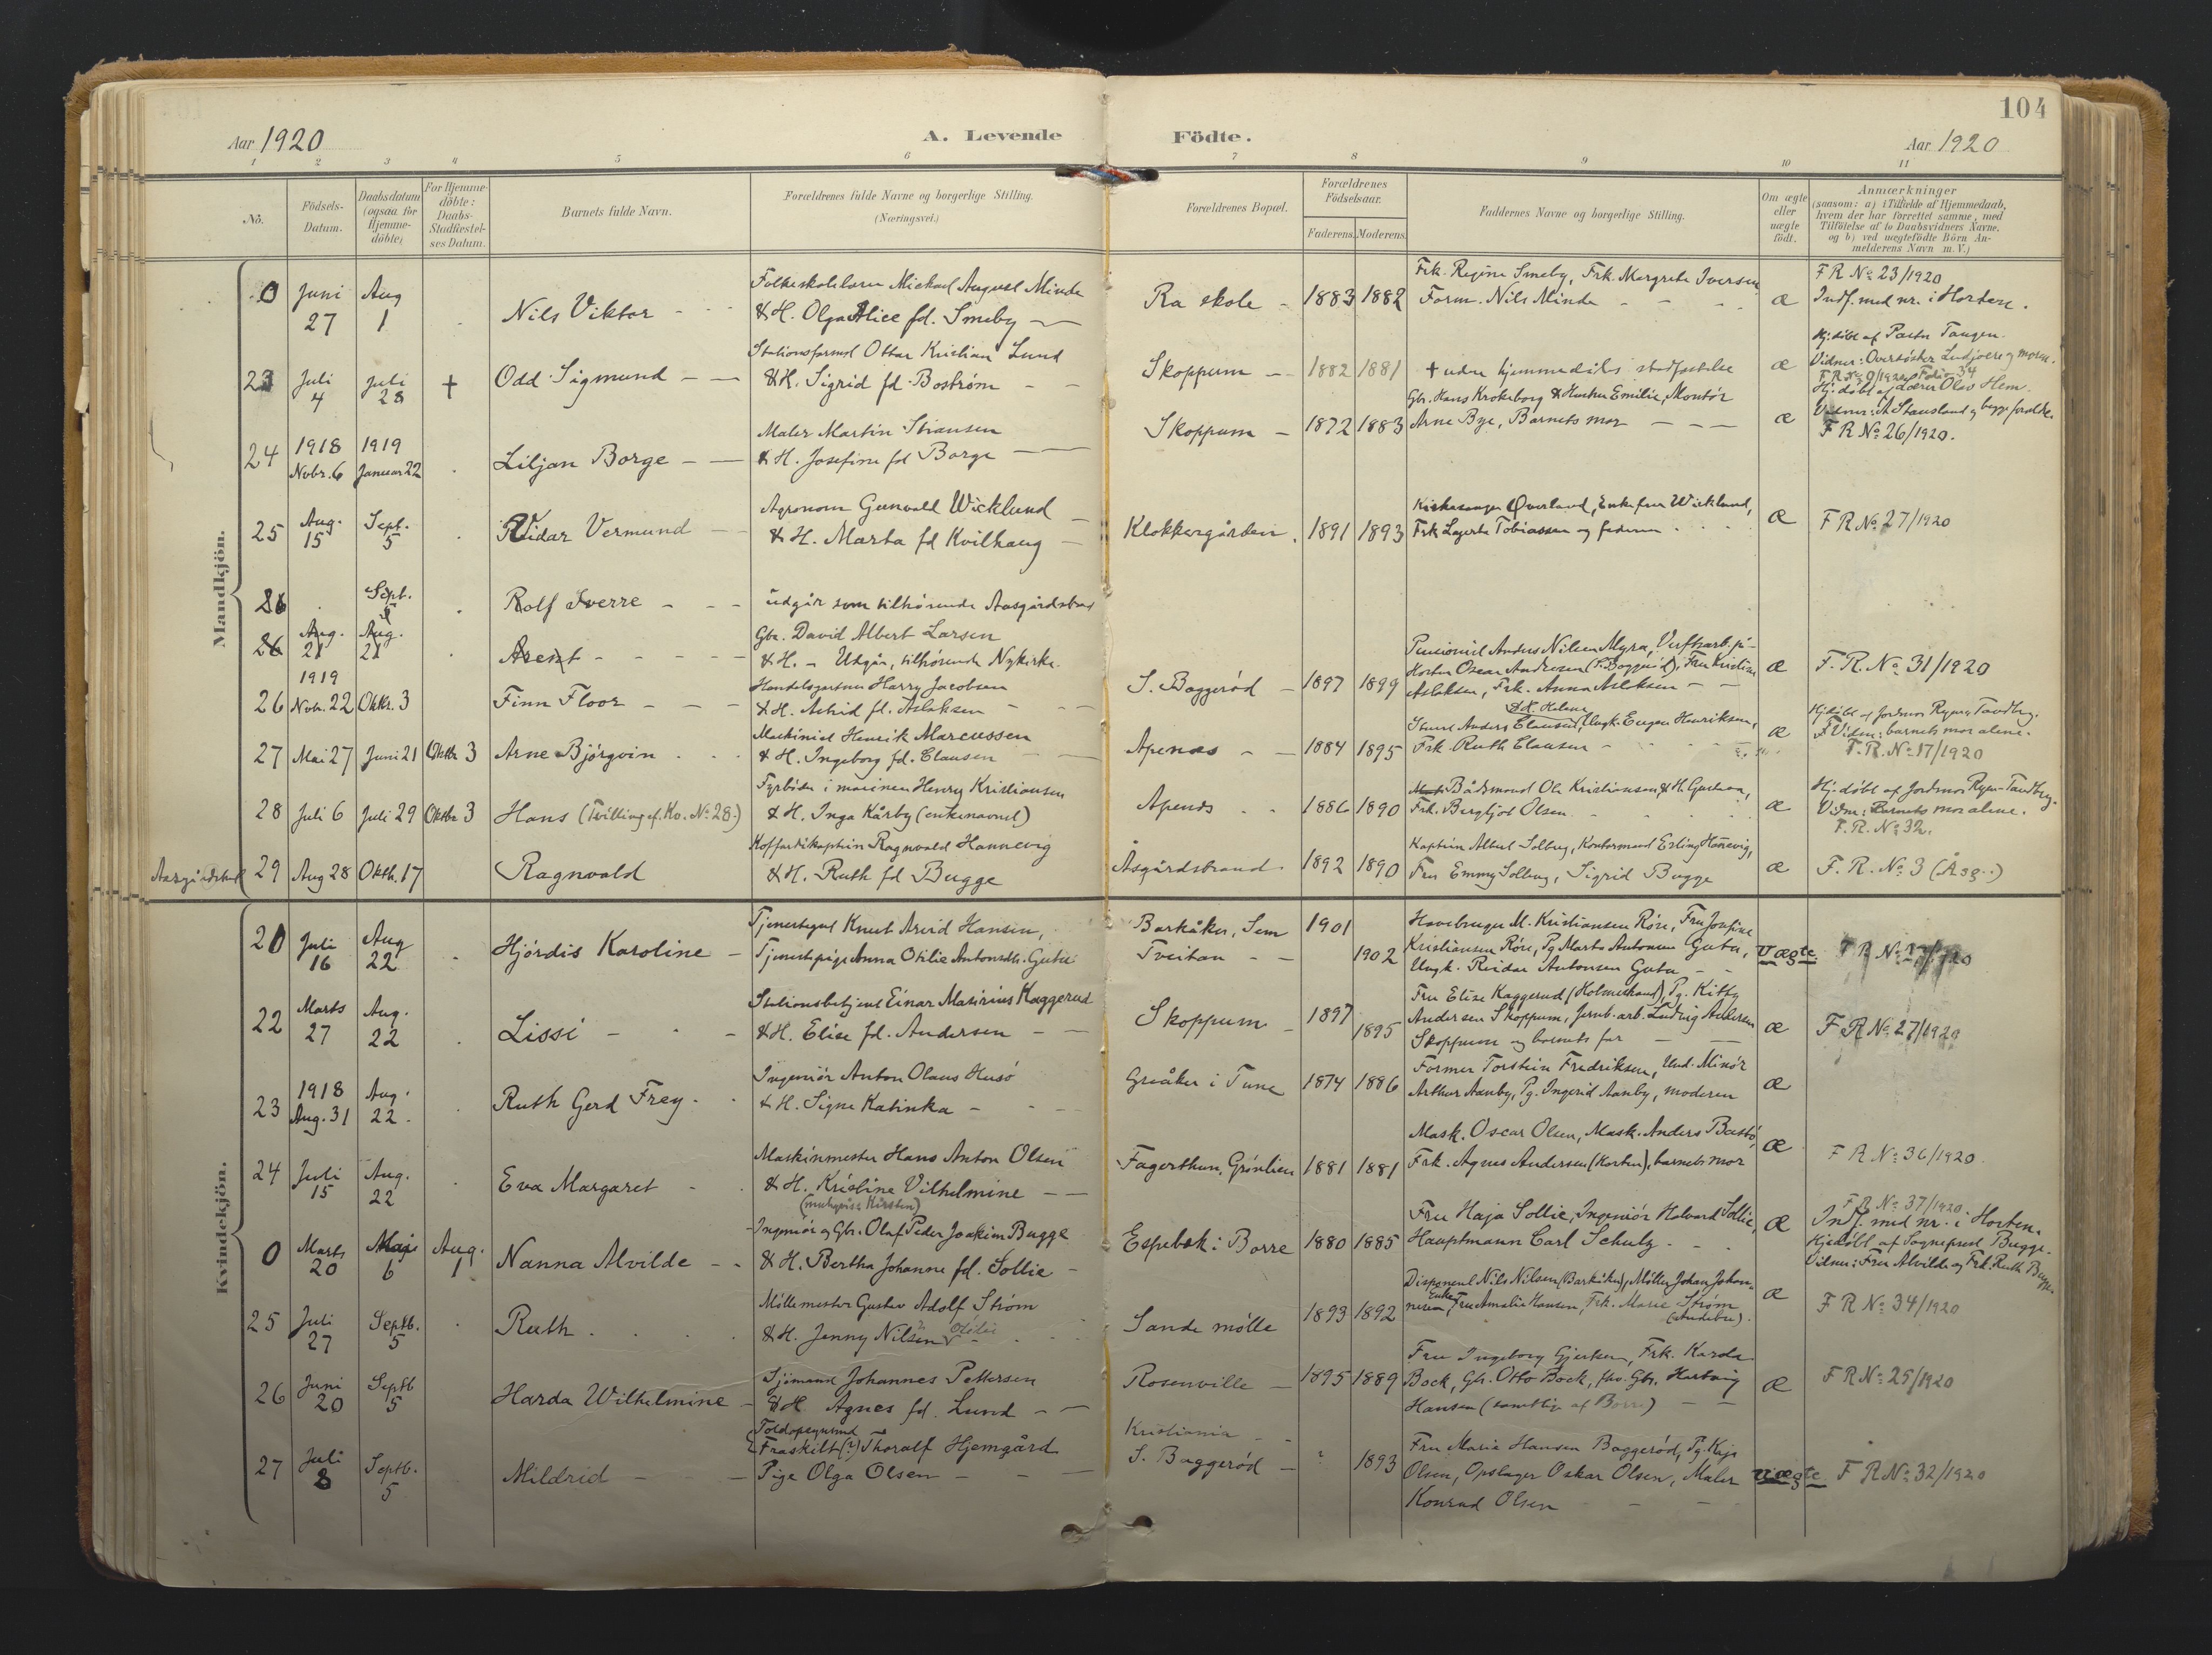 104
Aar 1920
A. Levende Födte.
Aar 1920
1 2 3 4 5 6 7 8 9 10 11
No.
Födsels-Datum.
Daabsdatum (ogsaa for Hjemme-döbte)
For Hjemme-döbte: Daabs-Stadfæstel-ses Datum.
Barnets fulde Navn.
Forældrenes fulde Navne og borgerlige Stilling. (Næringsvei.)
Forældrenes Bopæl.
Forældrenes Födselsaar.
Faderens. Moderens.
Faddernes Navne og borgerlige Stilling.
Om ægte eller uægte födt.
Anmærkninger (saasom: a) i Tilfælde af Hjemmedaab, hvem der har forrettet samme, med Tilföielse af to Daabsvidners Navne, og b) ved uægtefödte Börn An-melderens Navn m. V.)
Mandkjön.
0 Juni 27 Aug 1 Nils Viktor
Folkeskolelærer Mickael August Minde
& H. Olga Alice fd. Smeby
Ra skole 1883 1882
Frk. Regine Smeby, Frk. Margrethe Iversen
Form. Nils Minde æ
F R No 23/1920
Indf. med nr. i Horten.
23 Juli 4 Juli 28 + Odd Sigmund
Stationsformd Ottar Kristian Lund
& H. Sigrid fd. Boström
Skoppum 1882 1881
+ uden hjemmedåbs stadfæstelse æ
Hj. döbt af Pastor Tangen.
24 1918 Nobr. 6 1919 Januar 22 Liljan Borge
Maler Martin Stiansen
& H. Josefine fd Borge
Skoppum 1872 1883
Gbr. Hans Krokeborg & Hustru Emilie, Montör
Arne Bye, Barnets mor æ
Hj. döbt af Lærer Olav Hem.
Vidner: A Stausland og begge forældre.
F R No 26/1920.
25 Aug. 15 Sept. 5 Vidar Vermund
Agronom Gunvald Wicklund
& H. Marta fd Kvilhaug
Klokkergården 1891 1893
Kirkesanger Överland, Enkefru Wicklund,
Frk Lagerta Tobiassen og faderen æ
F R No 27/1920
26 Sept. 5 Rolf Sverre
udgår som tilhörende Aasgårdstrand
26 Aug. 21 Aug. 21 Arent
Gbr. David Albert Larsen
& H. - Utgår, tilhörende Nykirke.
26 1919 Nobr. 22 Oktbr. 3 Finn Floor
Handelsgartner Harry Jacobsen
& H. Astrid fd. Aslaksen
S. Baggeröd 1897 1899
Pensionist Anders Nilsen Myra, Verftsarb. på
Horten Oscar Andresen (S. Baggeröd), Fru Kristine
Aslaksen, Frk. Anna Aslaksen æ
F. R. No 31/1920
27 Mai 27 Juni 21 Oktbr 3 Arne Björgvin
Maskinist Henrik Marcussen
& H. Ingeborg fd. Clausen
Apenæs 1884 1895
& H. Helene
Anders Clausen, Ungk. Eugen Henriksen,
Frk. Ruth Clausen æ
Hj. döbt af Jordmor Ryen-Tandberg.
Vidner: barnets mor alene.
F. R. No 17/1920
28 Juli 6 Juli 29 Oktbr 3 Hans (Tvilling cf. Kv. No 28.)
Fyrböter i marinen Henry Kristiansen
& H. Inga Kårby (enkenavnet)
Apenæs 1886 1890
Bådsmand Ole Kristiansen & H. Gustava,
Frk. Bergljot Olsen æ
Hj. döbt af Jordmor Ryen-Tandberg.
Vidn: Barnets mor alene.
F. R. No 32.
Aasgårdstrd 29 Aug 28 Oktb. 17 Ragnvald
Koffardikaptein Ragnvald Hannevig
& H. Ruth fd Bugge
Åsgårdstrand 1892 1890
Kaptein Albert Solberg, Kontormand Erling Hannevig,
Fru Emmy Solberg, Sigrid Bugge æ
F. R. No 3 (Åsg.)
Kvindekjön.
20 Juli 16 Aug 22 Hjördis Karoline
Tjenestegut Knut Arvid Hansen,
Tjenestepige Anna Otilie Antonsdtr. Gutu
Barkåker, Sem 1901
Tveitan 1902
Havebruger M. Kristiansen Röre, Fru Josefine
Kristiansen Röre, Pg Marta Antonsen Gutu,
Ungk. Reidar Antonsen Gutu Uægte
22 Marts 27 Aug. 22 Lissi
Stationsbetjent Einar Masirius Kaggerud
& H. Elise fd. Andersen
Skoppum 1897 1895
Fru Elise Kaggerud (Holmestrand), Pg. Kitty
Andersen Skoppum, Jernb. arb. Ludvig Andersen
Skoppum og barnets far æ
F R No 27/1920
23 1918 Aug. 31 Aug. 22. Ruth Gerd Frey
Ingeniör Anton Olaus Husö
& H. Signe Katinka
Greåker i Tune 1874 1886
Former Torstein Fredriksen, Und. Minör
Arthur Aanby, Pg. Ingerid Aanby, moderen æ
24 Juli 15 Aug. 22 Eva Margaret
Maskinmester Hans Anton Olsen
& H. Kristine Vilhelmine
(muligvis: Kirsten)
Fagerthun, Grönlien 1881 1881
Mask. Oscar Olsen, Mask. Anders Bastö,
Frk. Agnes Andersen (Horten), barnets mor æ
F R No 36/1920
0 Marts 20 Maj 6 Aug. 1 Nanna Alvilde
Ingeniör og Gbr. Olaf Peder Joakim Bugge
& H. Bertha Johanne fd. Sollie
Espebæk i Borre 1880 1885
Fru Haja Sollie, Ingeniör Halvard Sollie,
Hauptmann Carl Schulz æ
F R No 37/1920
Indf. med nr. i Horten.
Hjedöbt af Sogneprest Bugge.
Vidner: Fru Alvilde og Frk. Ruth Bugge.
25 Juli 27 Septb. 5 Ruth
Möllemester Gustav Adolf Ström
& H. Jenny Nilsen Otilie
Sande mölle 1893 1892
Disponent Nils Nilsen (Barkåker), Möller Johan Johan-
nesen, Enkefru Amalie Hansen, Frk. Marie Ström
(Andebu). æ
F R No 34/1920
26 Juni 20 Septb 5 Harda Wilhelmine
Sjömand Johannes Pettersen
& H. Agnes fd. Lund
Rosenville 1895 1889
Fru Ingeborg Gjertsen, Frk. Karda
Bock, Gbr. Otto Bock, fhv. Gbr. Hartvig
Hansen (samtlige af Borre) æ
F R No 25/1920
27 Juli 8 Septb. 5 Mildrid
Toldopsynsmd
Fraskilt (?) Thoralf Hjemgård
Pige Olga Olsen
Kristiania
S. Baggeröd ? 1893
Fru Maria Hansen Baggeröd, Pg. Kaja
Olsen, Opslager Oskar Olsen, Maler
Konrad Olsen Uægte
F R No 32/1920